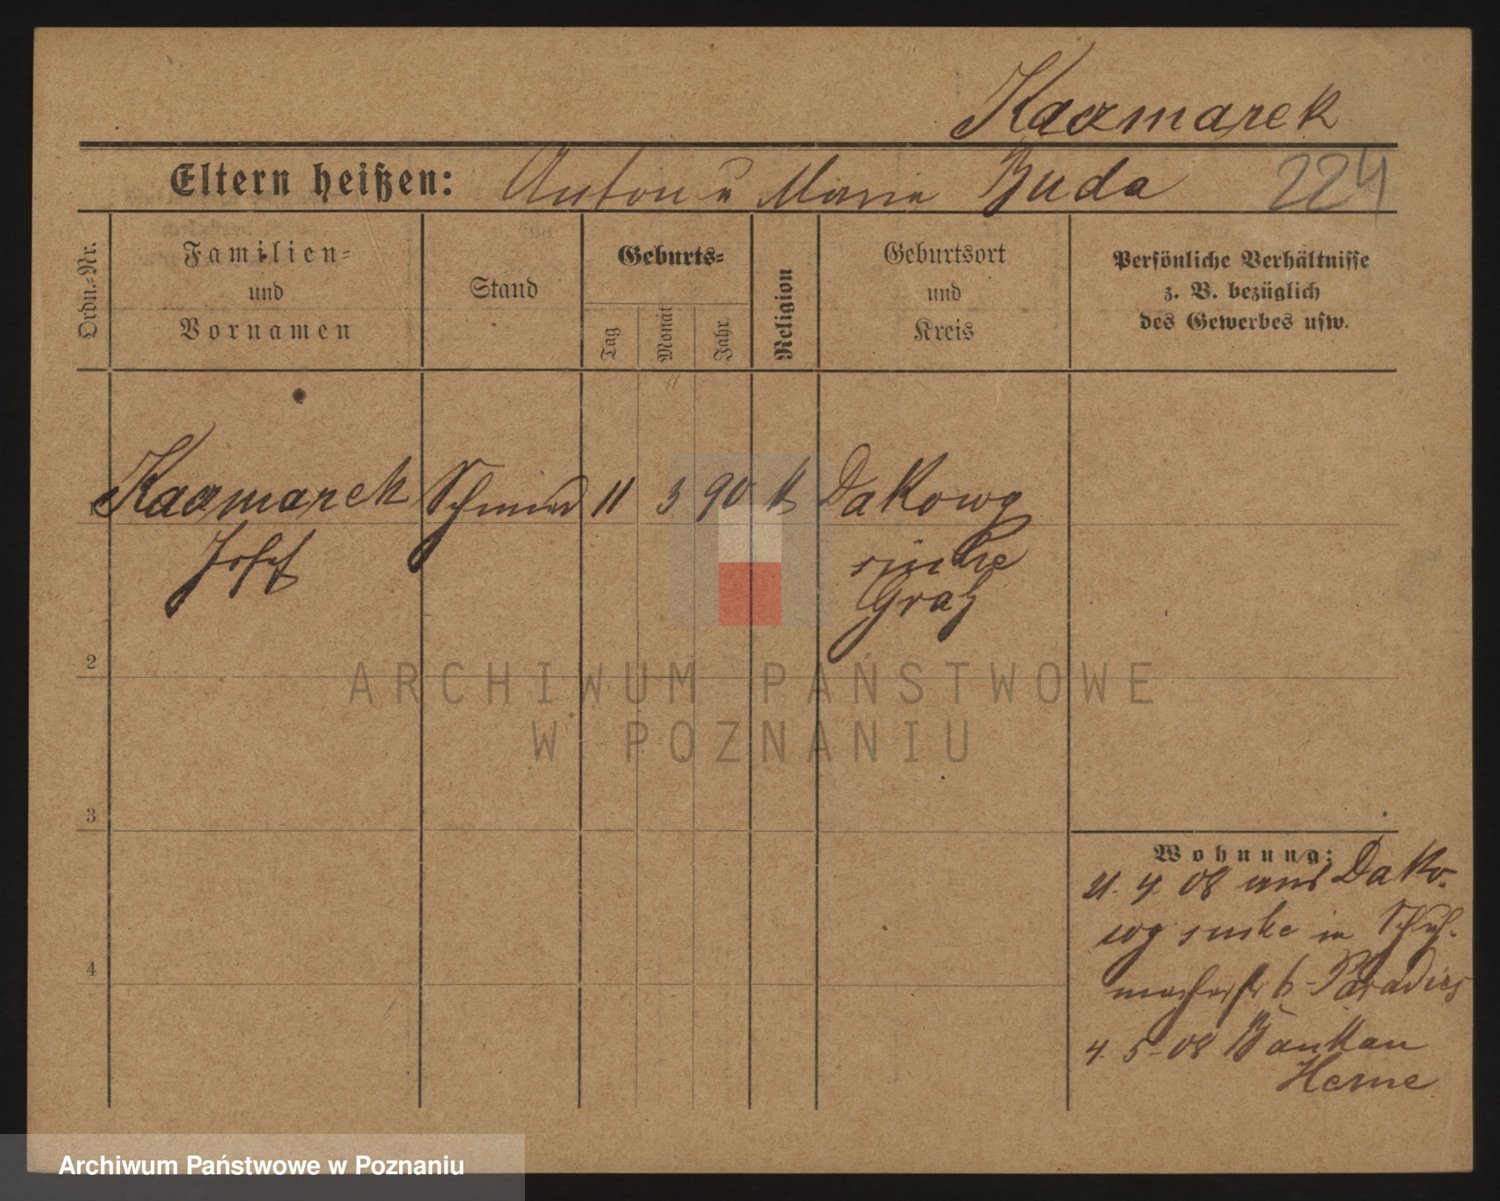 Kaczmarek
Eltern heißen: Anton u Maria Buda 224
Ordn.-Nr.
Familien-
und
Vornamen
Stand
Geburts-
Tag
Monat
Jahr
Religion
Geburtsort
und
Kreis
Persönliche Verhältnisse
z. B. bezüglich
des Gewerbes usw.
Kaczmarek Schmied 11 3 90 k Dakowy
Josef
suche
Grätz
2
3
4
Wohnung:
4. 08 aus Dako-
wy suche in Schuh-
macherstr 6 Paradies
4. 5-08
Herne
ARCHIWUM PAŃSTWOWE
W POZNANIU
Archiwum Państwowe w Poznaniu